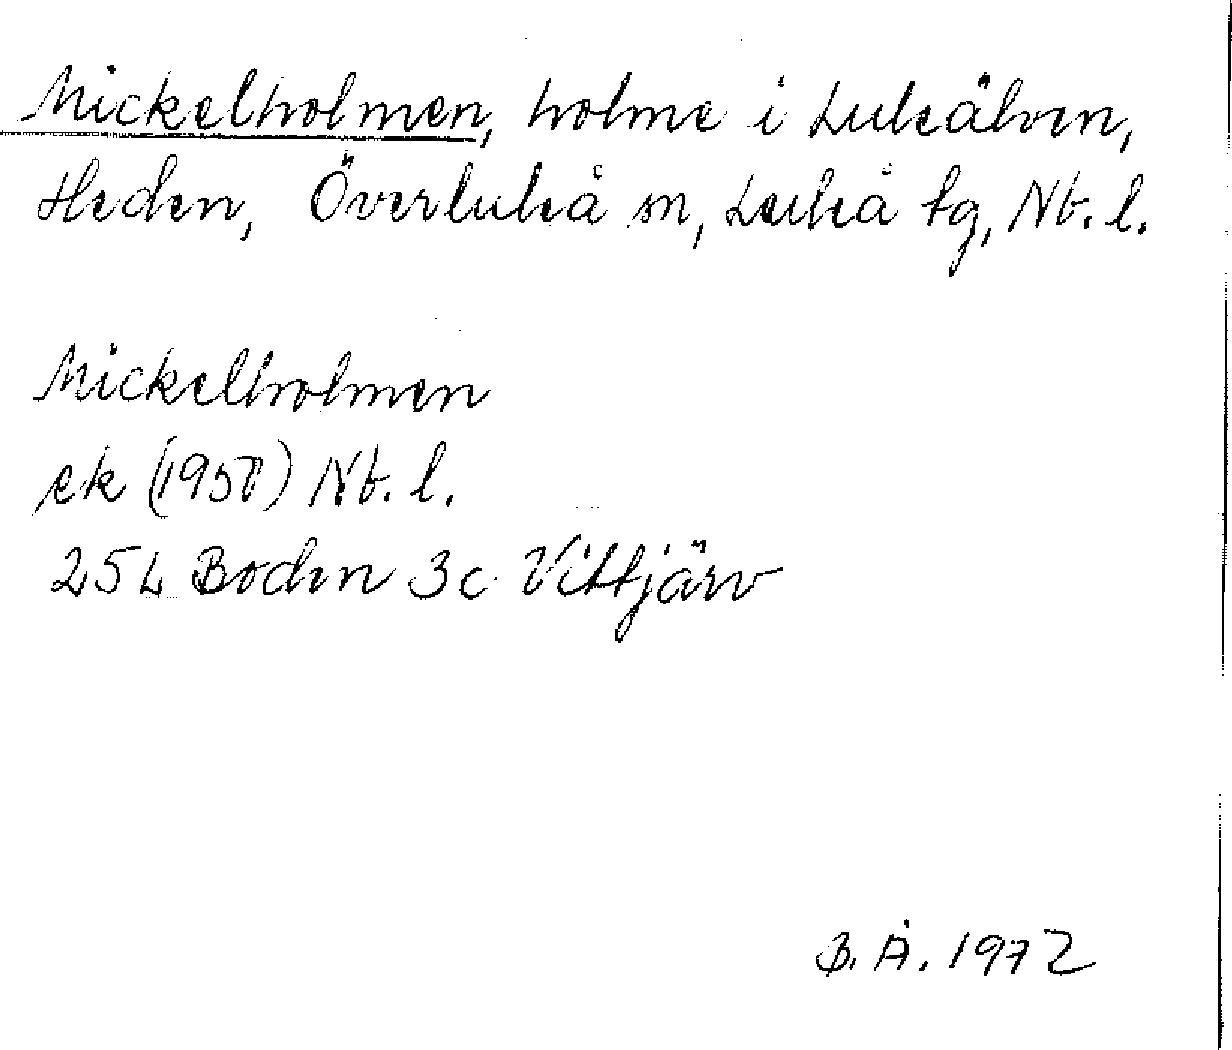 Mickelholmen, holme i Luleälven,
Heden, Överluleå sn, Luleå tg, Nb. l.
Mickelholmen
ek (1958) Nb. l.
25 L Boden 3c Vittjärv
B. Å. 1972